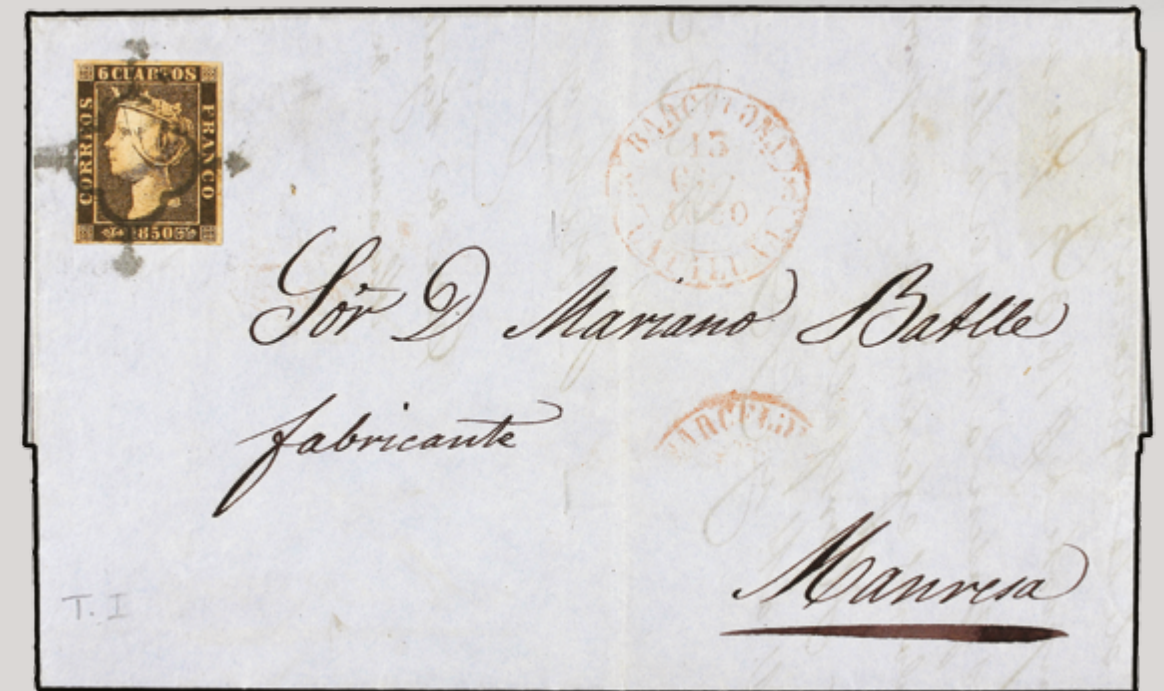 6 CUARTOS
CORREOS
FRANCO
1850
BARCELONA
15
1850
CATALUÑA
Sör D Mariano Batlle
fabricante
BARCELON
Manresa
T. I